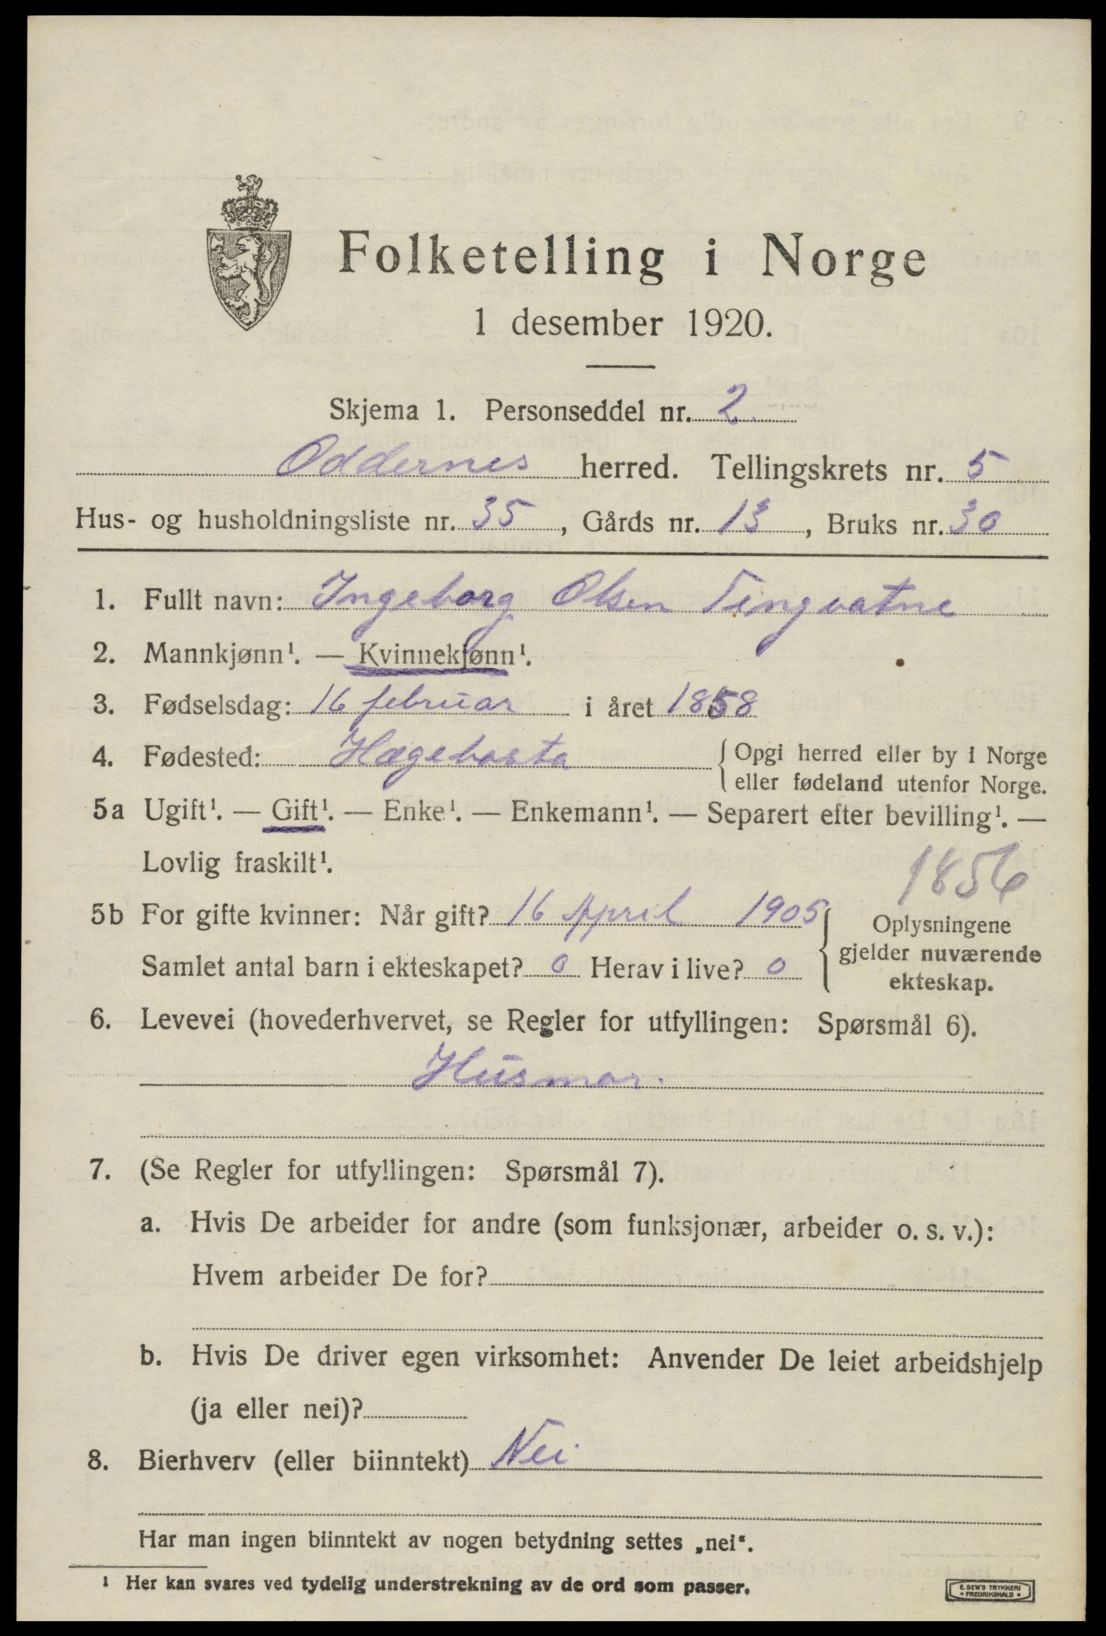 Folketelling i Norge
1 desember 1920.
Skjema 1. Personseddel nr. 2.
Oddernes herred. Tellingskrets nr. 5
Hus- og husholdningsliste nr. 35, Gårds nr. 13, Bruks nr. 30
1. Fullt navn: Ingeborg Olsen Tingvatne
2. Mannkjønn¹. — Kvinnekjønn¹.
3. Fødselsdag: 16 februar i året 1858
4. Fødested: Hægebosta { Opgi herred eller by i Norge
eller fødeland utenfor Norge.
5a Ugift¹. — Gift¹. — Enke¹. — Enkemann¹. — Separert efter bevilling¹. —
Lovlig fraskilt¹.
1856
5b For gifte kvinner: Når gift? 16 April 1905
Samlet antal barn i ekteskapet? 0 Herav i live? 0
Oplysningene
gjelder nuværende
ekteskap.
6. Levevei (hovederhvervet, se Regler for utfyllingen: Spørsmål 6).
Husmor.
7. (Se Regler for utfyllingen: Spørsmål 7).
a. Hvis De arbeider for andre (som funksjonær, arbeider o. s. v.):
Hvem arbeider De for?
b. Hvis De driver egen virksomhet: Anvender De leiet arbeidshjelp
(ja eller nei)?
8. Bierhverv (eller biinntekt) Nei
Har man ingen biinntekt av nogen betydning settes „nei“.
¹ Her kan svares ved tydelig understrekning av de ord som passer.
E. SEM'S TRYKKERI
• FREDRIKSHALD •